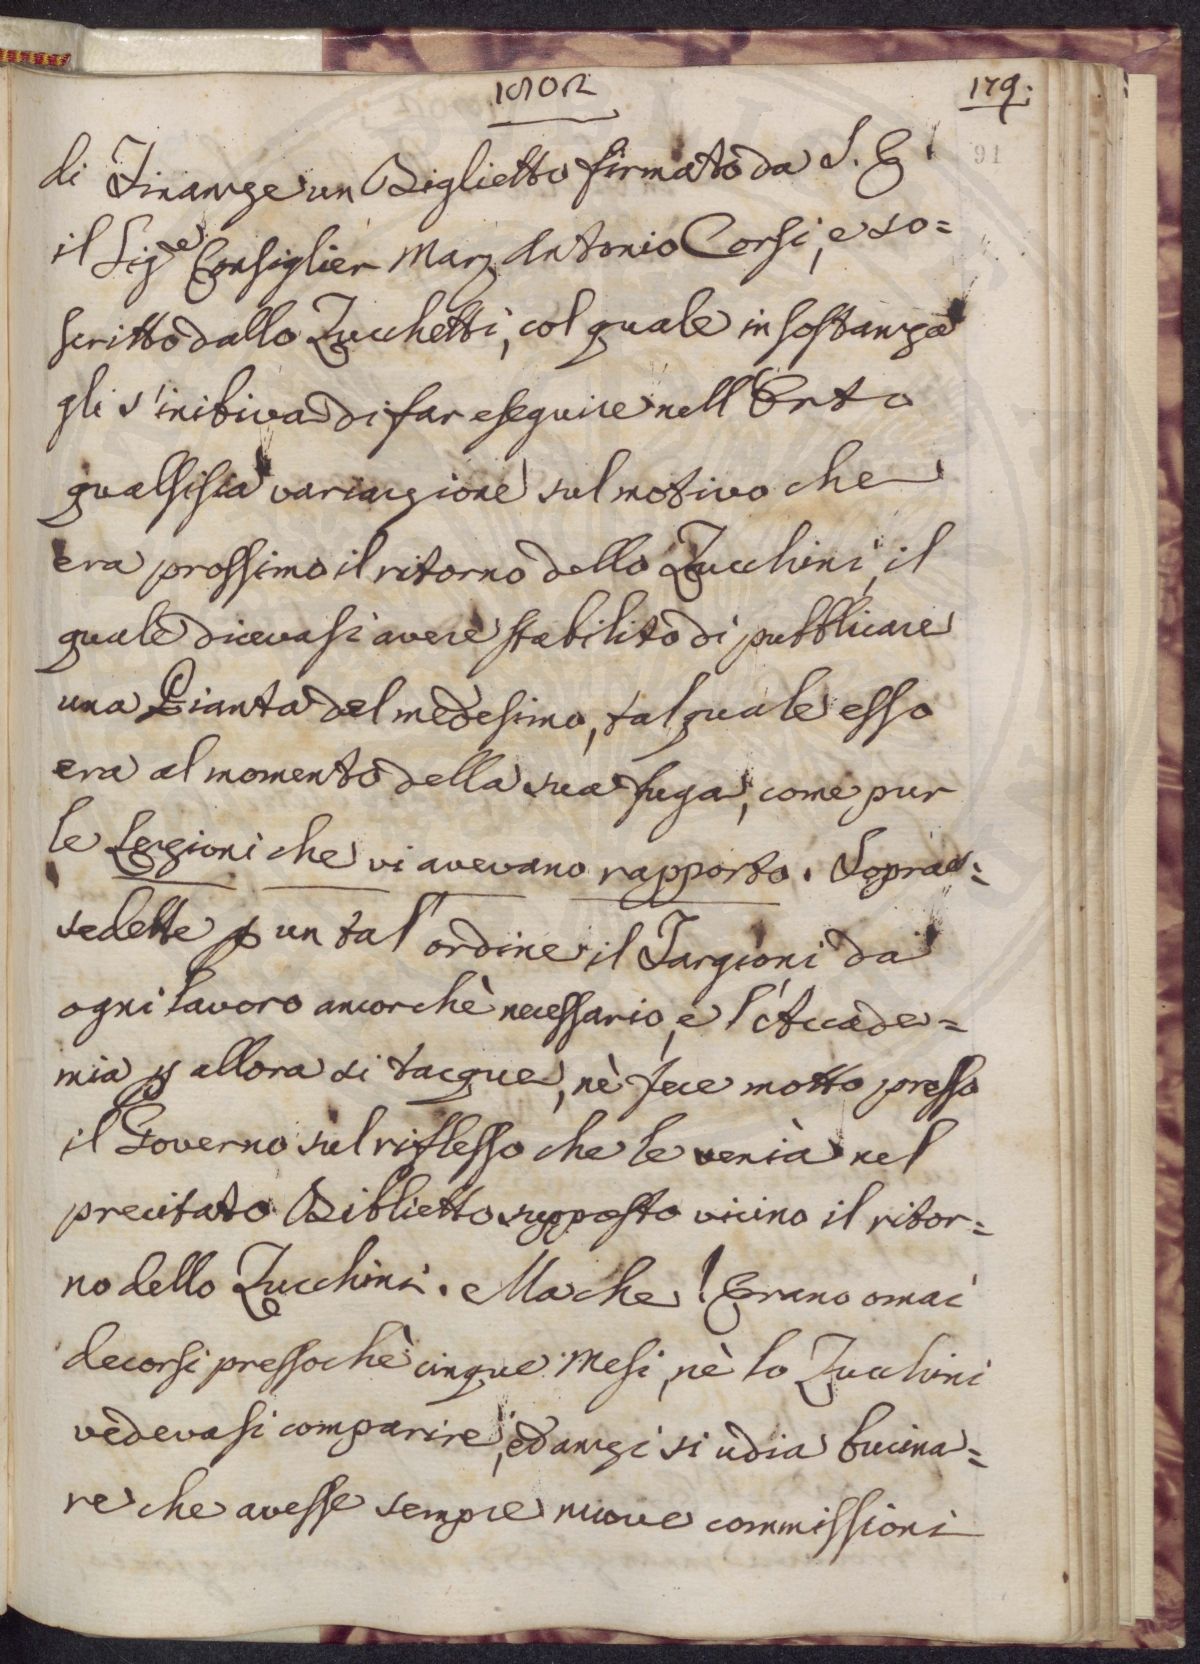 1802
179.
91
di Finanze un Biglietto firmato da S. E.
il Sig.e Consiglier Marc Antonio Corsi, e so=
scritto dallo Zucchetti, col quale in sostanza
gli s'inibiva di far eseguire nell'Orto
qualsisia variazione sul motivo che
era prossimo il ritorno dello Zucchini, il
quale dicevasi avere stabilito di pubblicare
una Pianta del medesimo, tal quale esso
era al momento della sua fuga, come pur
le Lezioni che vi avevano rapporto. Sopras=
sedette p un tal ordine il Targioni da
ogni lavoro ancorchè necessario, e l'Accade=
mia p allora si tacque, nè fece motto presso
il Governo sul riflesso che le venìa nel
precitato Biblietto supposto vicino il ritor=
no dello Zucchini. Ma che! Erano omai
decorsi pressochè cinque Mesi, nè lo Zucchini
vedevasi comparire, ed anzi si udia bucina=
re che avesse sempre nuove commissioni